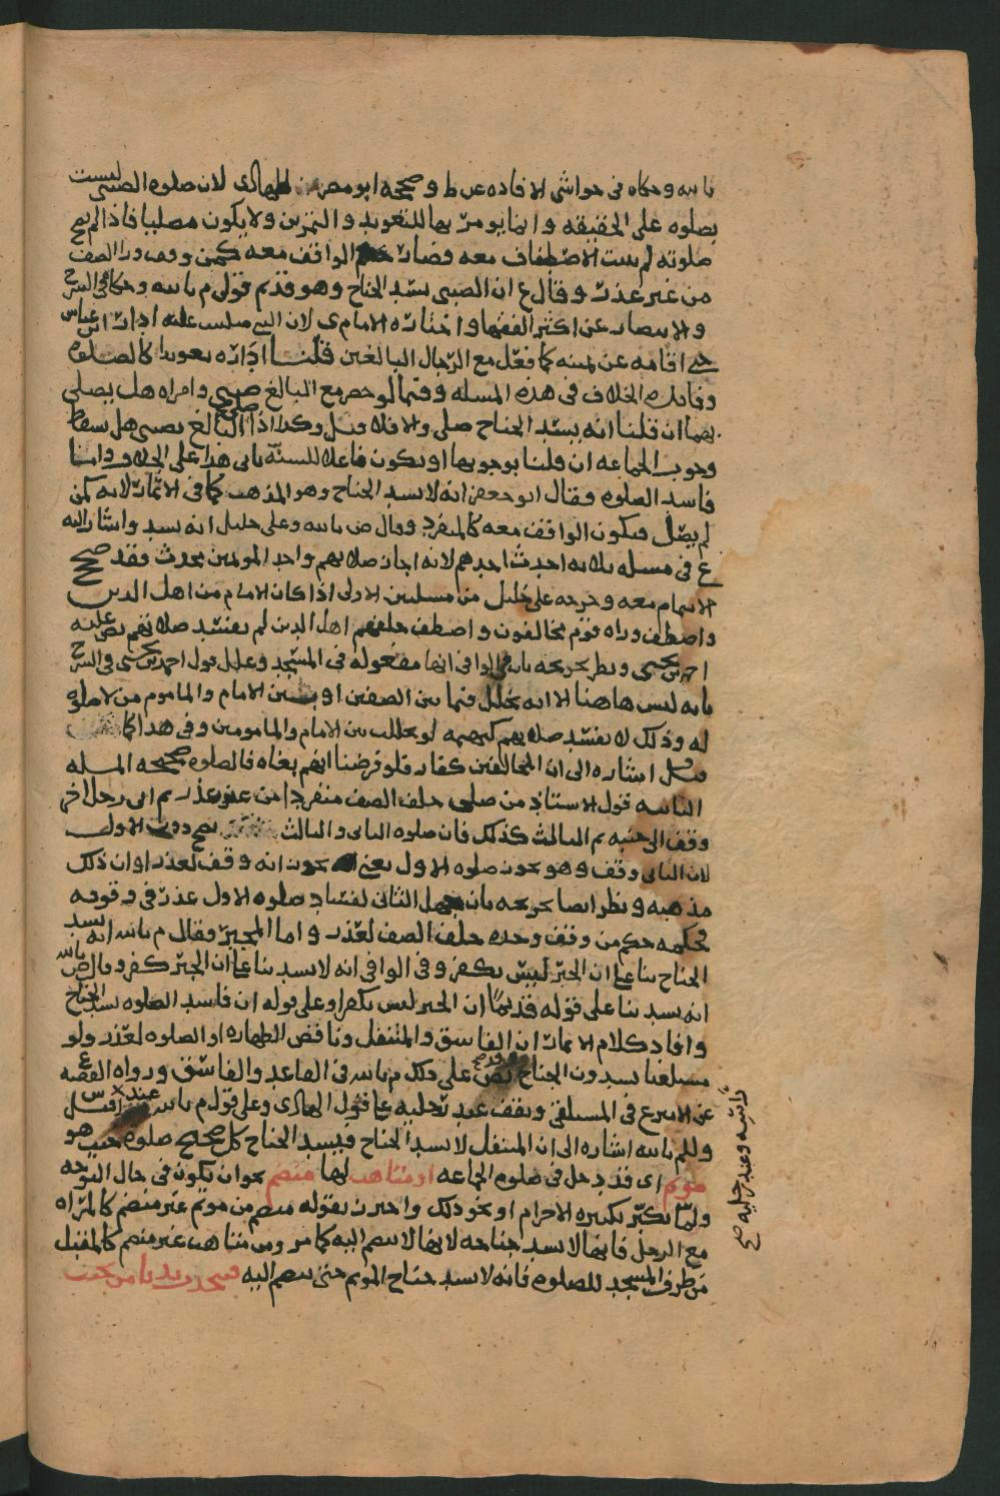 بالله وحكاه فى حواشى الافاده عن ط وصححه ابو مضر للهادى لان صلوه الصبى ليست
بصلوه على الحقيقه وانما يومر بها للتعويد والتمرين ولا يكون مصليا فاذا لم تصح
صلوته لم يثبت الاصطفاف معه فصار الواقف معه كمن وقف ورا الصف
من غير عذر وقال ع ان الصبى يسد الجناح وهو قديم قولى م بالله وحكاه فى الشرح
والانتصار عن اكثر الفقها واختاره الامام ى لان النبى صلى الله عليه ادار ابن عباس
حتى اقامه عن يمينه كما فعل مع الرجال البالغين قلنا اداره تعويدا كالصلوه
وفائده الخلاف فى هذه المسله وفيما لو حضر مع البالغ صبى وامراه هل يصلى
بهما ان قلنا انه يسد الجناح صلى والا فلا وكذا اذا صلى البالغ بصبى هل سقط
وجوب الجماعه ان قلنا بوجوبها او يكون فاعلا للسنه ياتى هذا على الخلاف واما
فاسد الصلوه فقال ابو جعفر انه لا يسد الجناح وهو المذهب كما فى الاثمار لانه كمن
لم يصل فيكون الواقف معه كالمنفرد وقال ض بالله وعلى خليل انه يسد واشار اليه
ع فى مسله ثلاثه احدث احدهم لانه اجاز صلاتهم واحد المؤتمين محدث فقد صح
الائتمام معه وخرجه على خليل من مسلتين الاولى اذا كان الامام من اهل الدين
واصطف وراه قوم مخالفون واصطف خلفهم اهل الدين لم تفسد صلاتهم نص عليه
احمد بن يحيى ونظر تخريجه بانه فى الوافى انها مفعوله فى المسجد وعلل قول احمد بن يحيى فى الشرح
بانه ليس هاهنا الا انه تخلل فيما بين الصفين او بين الامام والماموم من لا صلوه
له وذلك لا يفسد صلاتهم كبهيمه لو تخللت بين الامام والمامومين وفى هذا كما
قيل اشاره الى ان المخالفين كفار فلو فرضنا انهم بغاه فالصلوه صحيحه المسله
الثانيه قول الاستاذ من صلى خلف الصف منفردا من غير عذر ثم اتى رجل اخر
وقف الى جنبه ثم الثالث كذلك فان صلوه الثانى والثالث تصح دون الاول
لان الثانى وقف وهو يجوز صلوه الاول يعنى يجوز انه وقف لعذر او ان ذلك
مذهبه ونظر ايضا تخريجه بان جهل الثانى لفساد صلوه الاول عذر فى وقوفه
فحكمه حكم من وقف وحده خلف الصف لعذر واما المجبر فقال م بالله انه يسد
الجناح بنا على ان الجبر ليس بكفر وفى الوافى انه لا يسد بنا على ان الجبر كفر وقال ض بالله
انه يسد بنا على قوله قديما ان الجبر ليس بكفر او على قوله ان فاسد الصلوه يسد الجناح
وافاد كلام الاثمار ان الفاسق والمتنفل وناقص الطهاره او الصلوه لعذر ولو
مستلقيا يسدون الجناح نص على ذلك م بالله فى القاعد والفاسق ورواه الفقيه ع
عن الاسرع فى المستلقى ويقف عند رجليه على قول الهادى وعلى قول م بالله عند راسه قيل
وللم بالله اشاره الى ان المتنفل لا يسد الجناح فيسد الجناح كل صحيح صلوه حيث هو
موتم اى قد دخل فى صلوه الجماعه او متاهب لها منضم نحو ان يكون فى حال التوجه
ولما يكبر تكبيره الاحرام او نحو ذلك واحترز بقوله منضم من موتم غير منضم كالمراه
مع الرجل فانها لا تسد جناحه لانها لا تنضم اليه كما مر ومن متاهب غير منضم كالمقبل
من طرف المسجد للصلوه فانه لا يسد جناح الموتم حتى ينضم اليه
راسه وعند رجليه صح